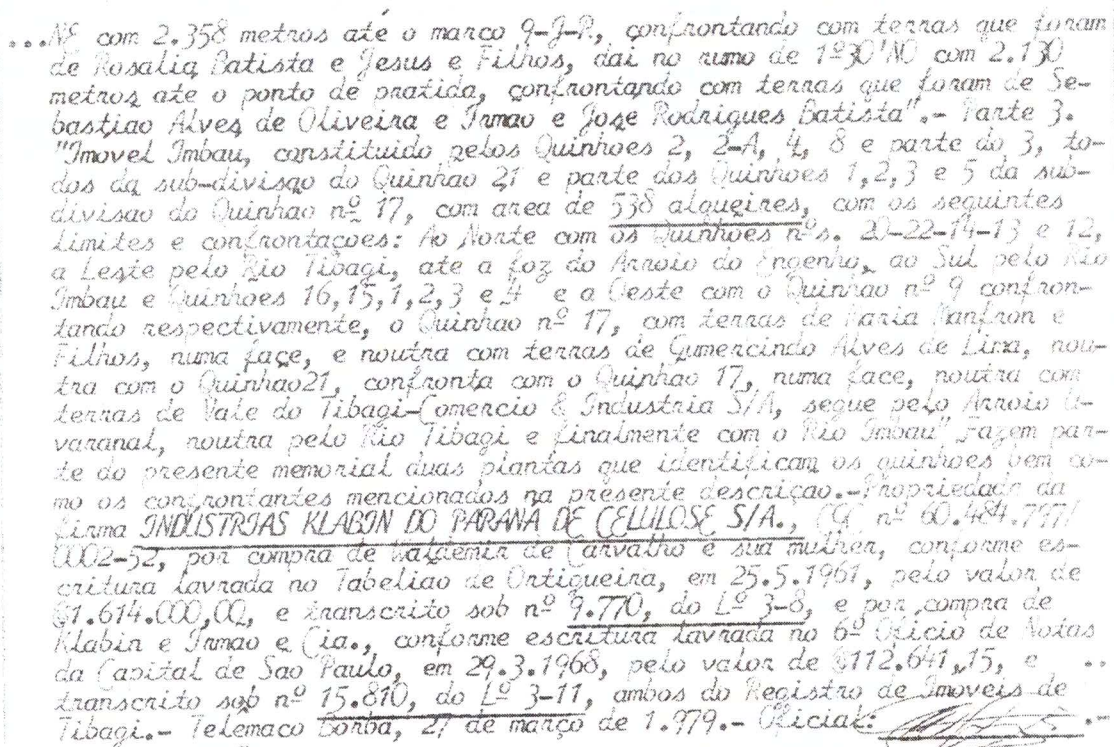 ...NE com 2.358 metros até o marco 9-J-R, confrontando com terras que foram
de Rosalia Batista e Jesus e Filhos, dai no rumo de 1º30'NO com 2.130
metros ate o ponto de pratida, confrontando com terras que foram de Se-
bastiao Alves de Oliveira e Irmao e Jose Rodrigues Batista".- Parte 3.
"Imovel Imbau, constituido pelos Quinhoes 2, 2-A, 4, 8 e parte do 3, to-
dos da sub-divisao do Quinhao 21 e parte dos Quinhoes 1,2,3 e 5 da sub-
divisao do Quinhao nº 17, com area de 538 alqueires, com os seguintes
limites e confrontaçoes: Ao Norte com os Quinhoes nºs. 20-22-14-13 e 12,
a Leste pelo Rio Tibagi, ate a foz do Arroio do Engenho, ao Sul pelo Rio
Imbau e Quinhoes 16,15,1,2,3 e 4 e a Oeste com o Quinhao nº 9 confron-
tando respectivamente, o Quinhao nº 17, com terras de Maria Manfron e
Filhos, numa face, e noutra com terras de Gumercindo Alves de Lima, nou-
tra com o Quinhao21, confronta com o Quinhao 17, numa face, noutra com
terras de Vale do Tibagi-Comercio & Industria S/A, segue pelo Arroio U-
varanal, noutra pelo Rio Tibagi e finalmente com o Rio Imbau" Fazem par-
te do presente memorial duas plantas que identificam os quinhoes bem co-
mo os confrontantes mencionados na presente descriçao.-Propriedade da
firma INDUSTRIAS KLABIN DO PARANA DE CELULOSE S/A., CGC nº 60.484.797/
0002-52, por compra de Waldemir de Carvalho e sua mulher, conforme es-
critura lavrada no Tabeliao de Ortigueira, em 25.5.1961, pelo valor de
₢1.614.000,00, e transcrito sob nº 9.770, do Lº 3-8, e por compra de
Klabin e Irmao e Cia., conforme escritura lavrada no 6º Oficio de Notas
da Capital de Sao Paulo, em 29.3.1968, pelo valor de ₢112.641,15, e ..
transcrito sob nº 15.810, do Lº 3-11, ambos do Registro de Imoveis de
Tibagi.- Telemaco Borba, 27 de março de 1.979.- Oficial: .-